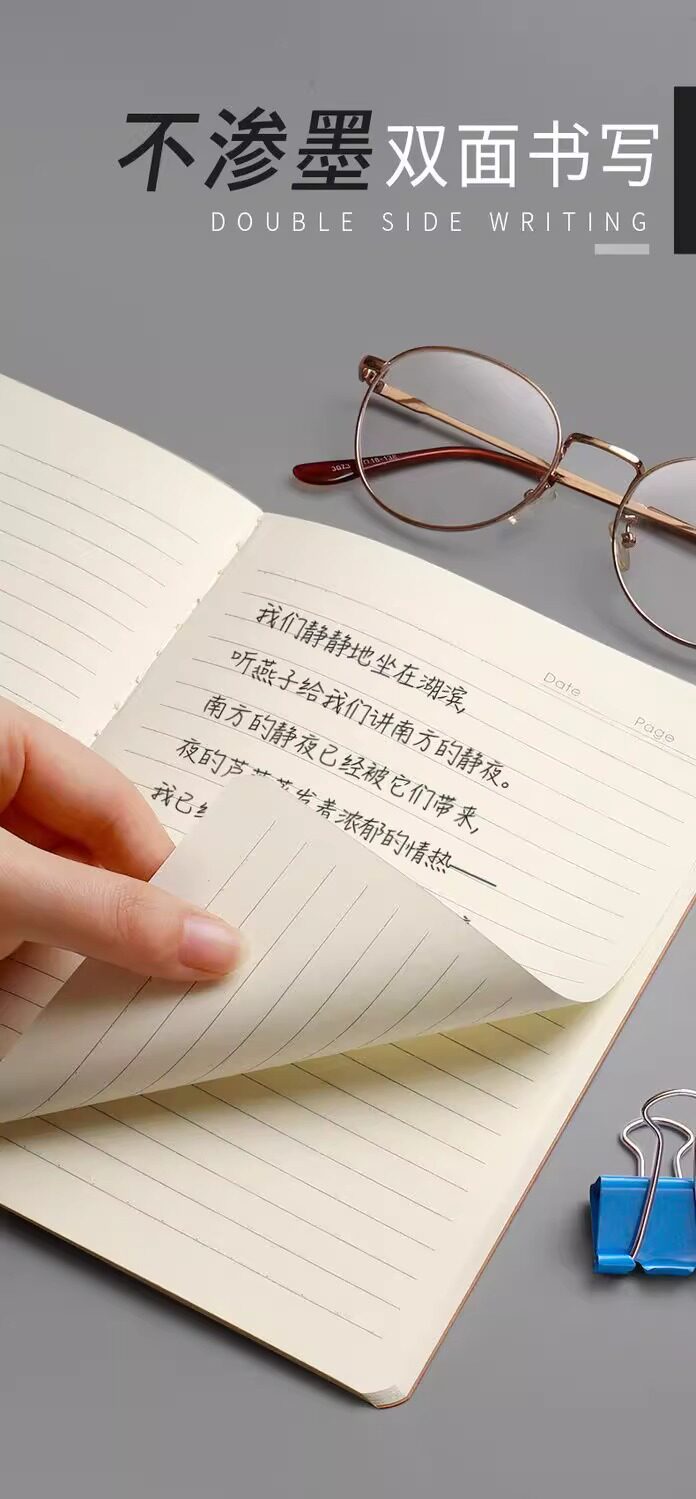 不渗墨双面书写
DOUBLE SIDE WRITING
Date
Page
我们静静地坐在湖滨,
听燕子给我们讲南方的静夜。
南方的静夜已经被它们带来,
夜的芦 发着浓郁的情热——
我已